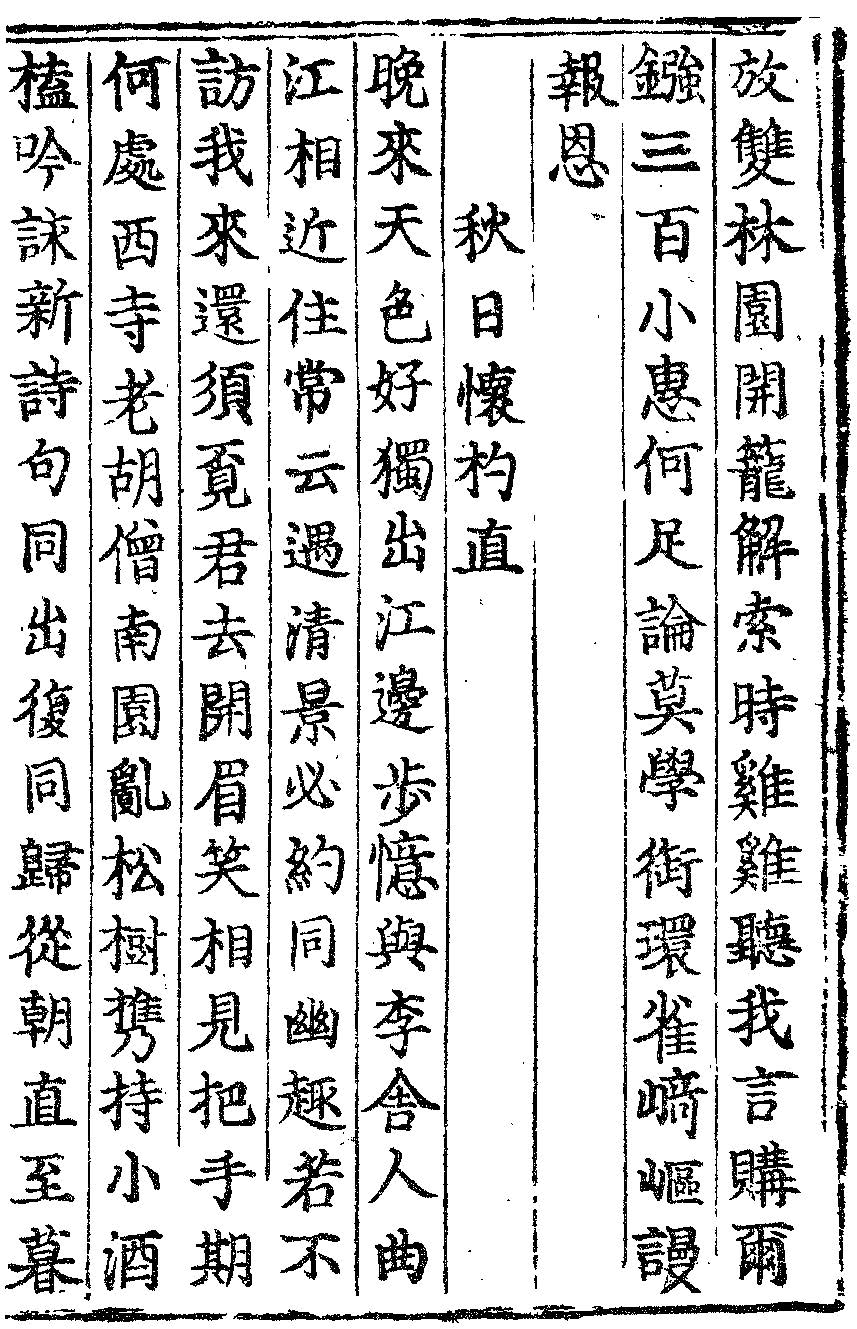 放雙林園開籠解索時雞雞聽我言購爾
鏹三百小惠何足論莫學銜環雀崎嶇謾
報恩
秋日懷杓直
晚來天色好獨出江邊步憶與李舍人曲
江相近住常云遇清景必約同幽趣若不
訪我來還須覓君去開眉笑相見把手期
何處西寺老胡僧南園亂松樹攜持小酒
榼吟詠新詩句同出復同歸從朝直至暮